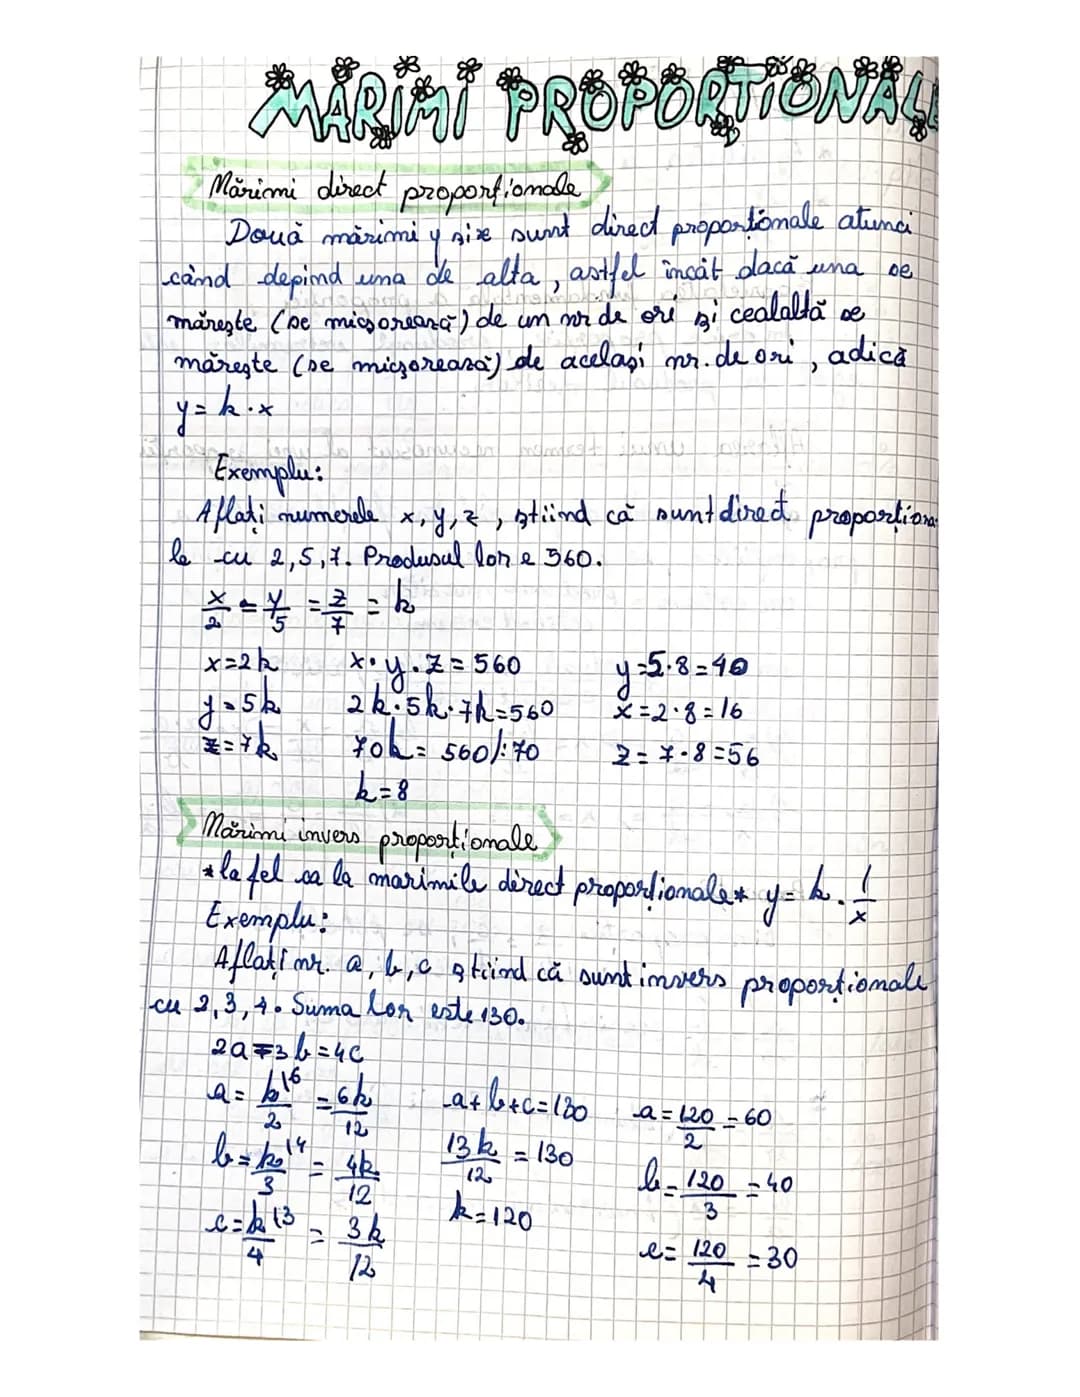 MĂRIMI PROPORȚIONALE
Mărimi direct proporționale
Două mărimi y și x sunt direct proporționale atunci
când depind una de alta, astfel încât dacă una se
mărește (se micșorează) de un nr de ori și cealaltă se
mărește (se micșorează) de același nr. de ori, adică
y = k · x
Exemplu:
Aflați numerele x, y, z, știind că sunt direct proporționa-
le cu 2, 5, 7. Produsul lor e 560.
x/2 = y/5 = z/7 = k
x=2k x · y · z = 560 y=5·8=40
y=5k 2k·5k·7k=560 x=2·8=16
z=7k 70k = 560 /:70 z = 7·8=56
k=8
Mărimi invers proporționale
*la fel ca la marimile direct proporționale* y = k · 1/x
Exemplu:
Aflați nr. a, b, c știind că sunt invers proporționale
cu 2, 3, 4. Suma lor este 130.
2a=3b=4c
a = k/2 |6 = 6k/12 a+b+c=130 a = 120/2 = 60
b = k/3 |4 = 4k/12 13k/12 = 130 b = 120/3 = 40
c = k/4 |3 = 3k/12 k=120 c = 120/4 = 30